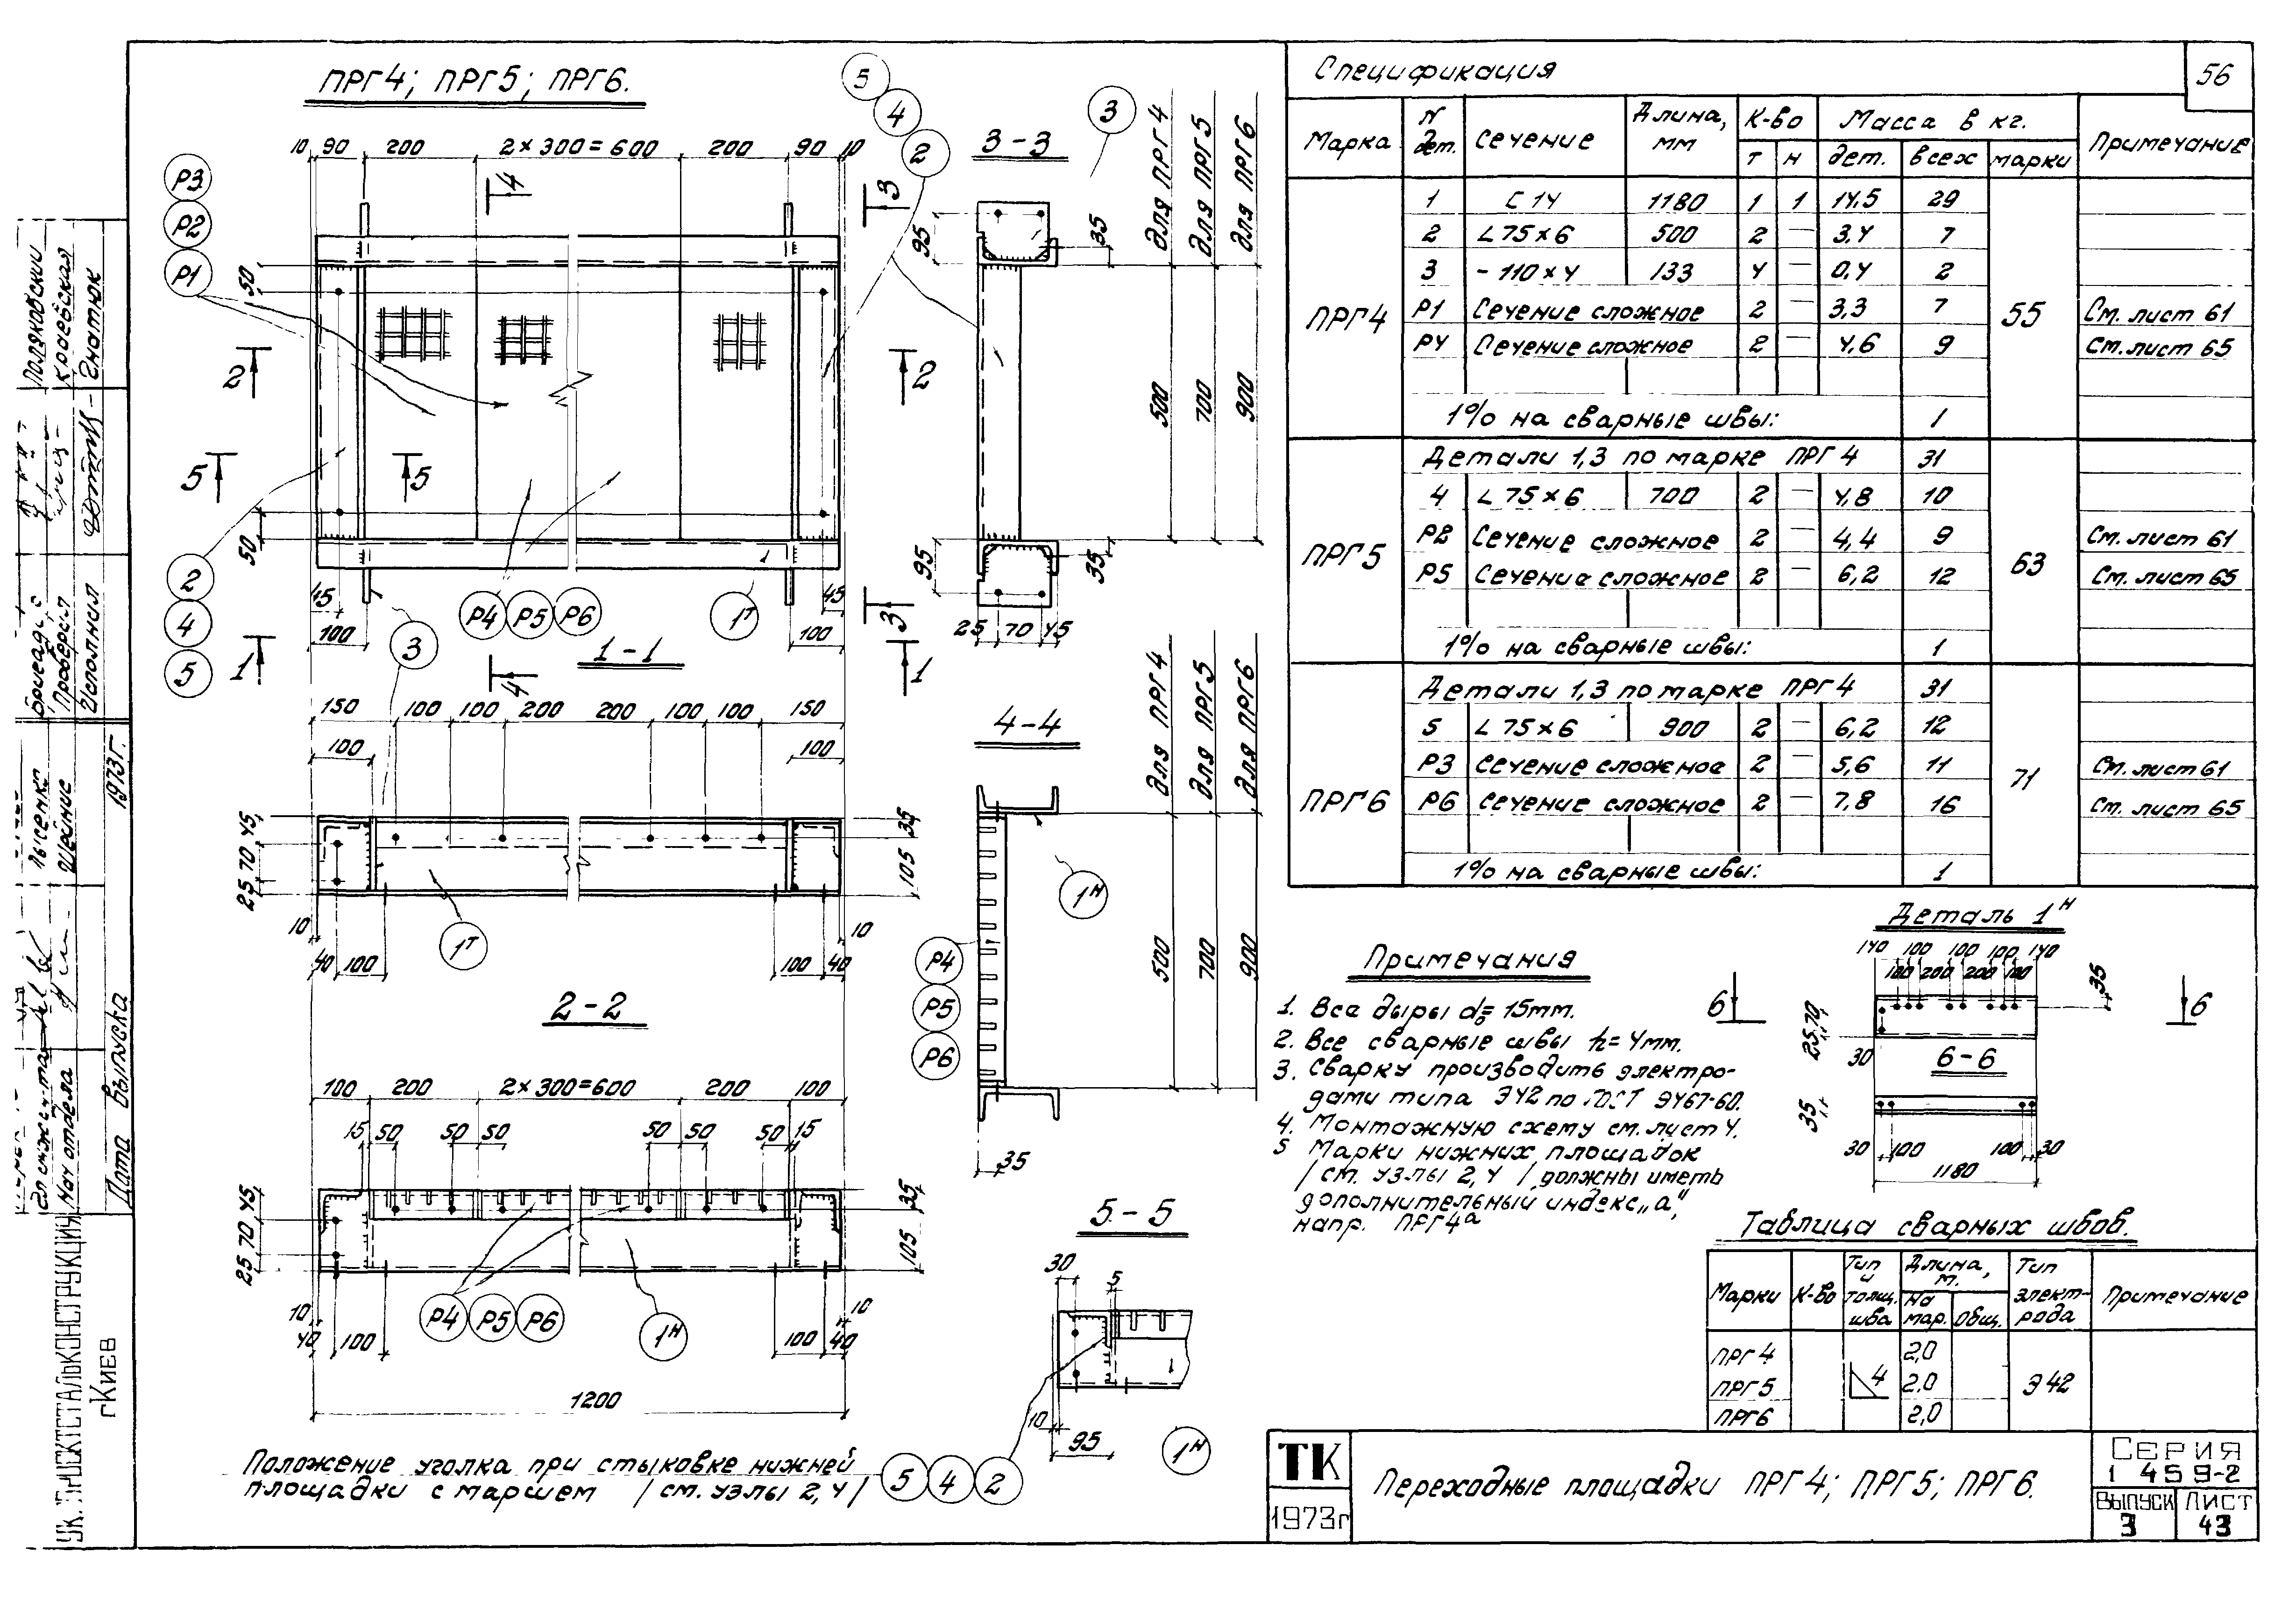 56
ПРГ4; ПРГ5; ПРГ6.
10 90 200 2×300=600 200 90 10
Р3
Р2
Р1
5
4
2
3
4
3
50
2
2
5
5
50
2
4
5
45
100
3
Р4 Р5 Р6
1Т
45
100
3
1
1
4
3-3
3
95
35
500 700 900
для ПРГ4
для ПРГ5
для ПРГ6
95
35
25 70 45
1-1
150 100 100 200 200 100 100 150
100 100
45
70
25
35
105
10 10
40 100 100 40
1Т
4-4
для ПРГ4
для ПРГ5
для ПРГ6
1Н
500 700 900
Р4
Р5
Р6
35
2-2
100 200 2×300=600 200 100
15 50 50 50 50 50 50 15
45
70
25
35
105
10 10
40 100 100 40
Р4 Р5 Р6
1Н
1200
5-5
30 5
10
95
1Н
Положение уголка при стыковке нижней
площадки с маршем /см. узлы 2,4/
5 4 2
Спецификация
Марка N дет. Сечение Длина, мм К-во Масса в кг. Примечание
т н дет. всех марки
ПРГ4 55
1 С 14 1180 1 1 14,5 29
2 ∟75×6 500 2 — 3,4 7
3 -110×4 133 4 — 0,4 2
Р1 Сечение сложное 2 — 3,3 7 См. лист 61
Р4 Сечение сложное 2 — 4,6 9 См. лист 65
1% на сварные швы: 1
ПРГ5 63
Детали 1,3 по марке ПРГ4 31
4 ∟75×6 700 2 — 4,8 10
Р2 Сечение сложное 2 — 4,4 9 См. лист 61
Р5 Сечение сложное 2 — 6,2 12 См. лист 65
1% на сварные швы: 1
ПРГ6 71
Детали 1,3 по марке ПРГ4 31
5 ∟75×6 900 2 — 6,2 12
Р3 Сечение сложное 2 — 5,6 11 См. лист 61
Р6 Сечение сложное 2 — 7,8 16 См. лист 65
1% на сварные швы: 1
Примечания
1. Все дыры d₀= 15мм.
2. Все сварные швы h=4мм.
3. Сварку производить электро-
дами типа Э42 по ГОСТ 9467-60.
4. Монтажную схему см. лист 4.
5 Марки нижних площадок
/см. узлы 2,4 / должны иметь
дополнительный индекс „а",
напр. ПРГ4а
Деталь 1Н
140 100 100 100 140
100 200 200 100
35
6 6
25 70
30
6-6
35
30 100 100 30
1180
Таблица сварных швов.
Марки К-во Тип и толщ. шва Длина, м. Тип элект-рода Примечание
На мар. Общ.
ПРГ4 2,0
ПРГ5 4 2,0 Э42
ПРГ6 2,0
ТК
1973г
Переходные площадки ПРГ4; ПРГ5; ПРГ6.
Серия
1 459-2
Выпуск
3
Лист
43
Поляковский
Краевская
Гнатюк
Проверил
Исполнил
Лысенко
Шейнис
1973г.
Нач отдела
Дата выпуска
УК. ПРОЕКТСТАЛЬКОНСТРУКЦИЯ
г Киев